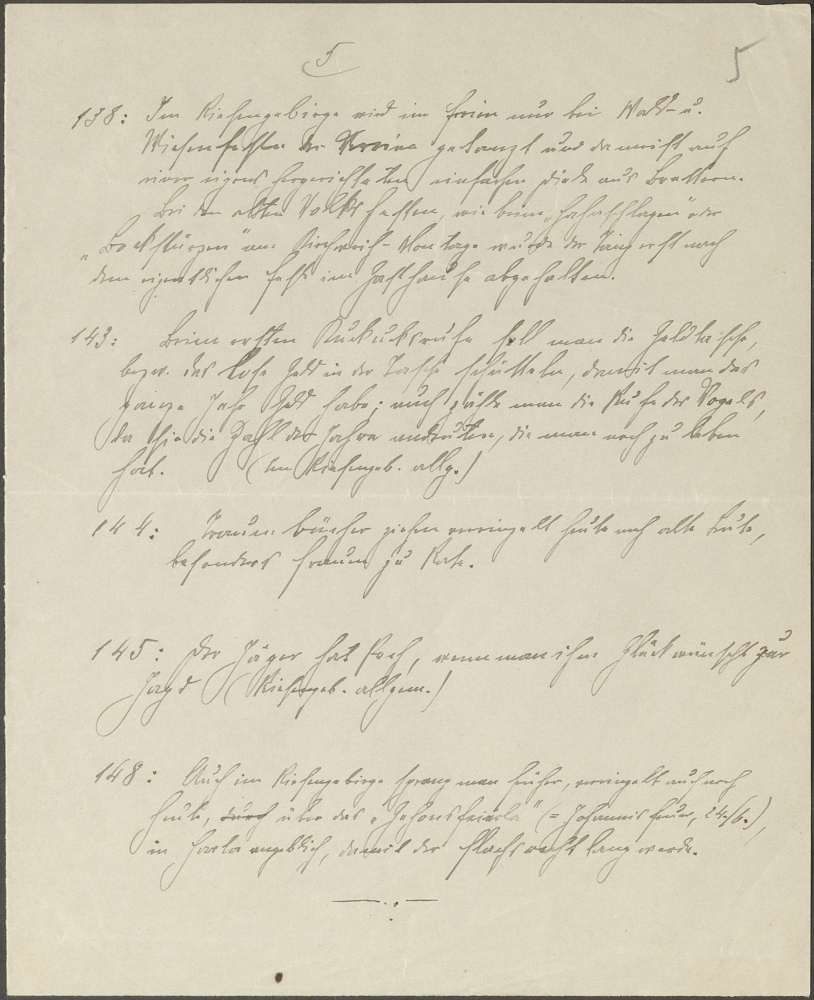 5
5
138: Im Riesengebirge wird im freien nur bei Wald- u.
Wiesenfesten der Vereine getanzt und da meist auf
einer eigens hergerichteten einfachen Diele aus Brettern.
Bei den alten Volksfesten, wie beim „Hahnschlagen" oder
„Bockstürzen" am Kirchweih-Montage wurde der Tanz erst nach
dem eigentlichen Feste im Gasthause abgehalten.
143: Beim ersten Kuckucksrufe soll man die Geldtasche,
bezw. das lose Geld in der Tasche schütteln, damit man das
ganze Jahr Geld habe; auch zähle man die Rufe des Vogels,
da sie die Zahl der Jahre andeuten, die man noch zu leben
hat. (Im Riesengeb. allg.)
144: Traumbücher ziehen vereinzelt heute noch alte Leute,
besonders Frauen zu Rate.
145: Der Jäger hat Pech, wenn man ihm Glück wünscht zur
Jagd (Riesengeb. allgem.)
148: Auch im Riesengebirge sprang man früher, vereinzelt auch noch
heute, durch über das „Gehonsfeierla" (= Johannisfeuer, 24./6.),
in Harta angeblich, damit der Flachs recht lang werde.